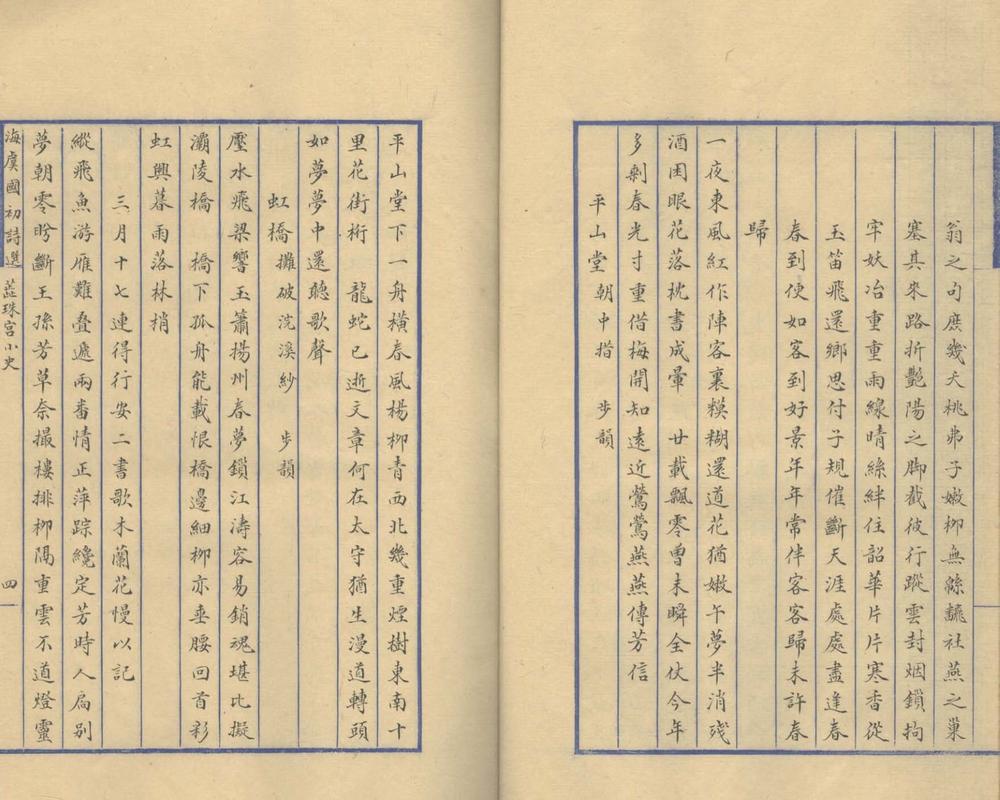 翁之句庶幾夭桃弗子嫩柳無緜毓社燕之巢
塞其來路折艷陽之脚截彼行蹤雲封烟鎖拘
牢妖冶重重雨線晴絲絆住韶華片片寒香從
玉笛飛還鄉思付子規催斷天涯處處盡逢春
春到便如客到好景年年常伴客客歸未許春
歸
一夜東風紅作陣客裏糢糊還道花猶嫩午夢半消殘
酒困眼花落枕書成暈　廿載飄零曾未瞬全仗今年
多剩春光寸重借梅開知遠近鶯鶯燕燕傳芳信
平山堂朝中措　步韻
平山堂下一舟橫春風楊柳青西北幾重煙樹東南十
里花街桁　龍蛇已逝文章何在太守猶生漫道轉頭
如夢夢中還聽歌聲
虹橋攤破浣溪紗　步韻
壓水飛梁響玉簫揚州春夢鎖江濤容易銷魂堪比擬
灞陵橋　橋下孤舟能載恨橋邊細柳亦垂腰回首彩
虹興暮雨落林梢
三月十七連得行安二書歌木蘭花慢以記
縱飛魚游雁難叠遞兩番情正萍踪纔定芳時人扃別
夢朝零盻斷王孫芳草奈撮樓排柳隔重雲不道燈靈
海虞國初詩選　蕋珠宮小史　四